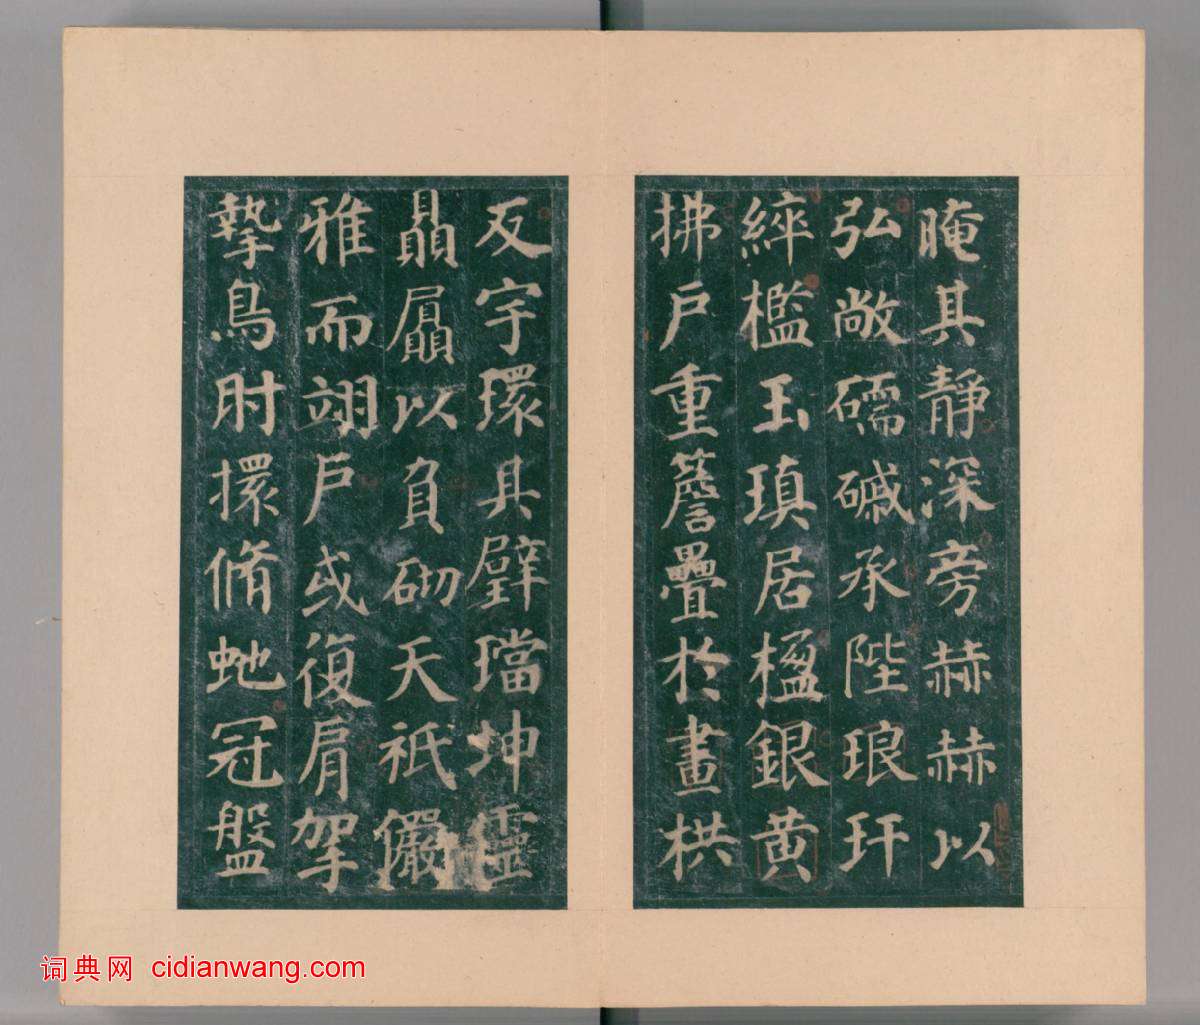 晻其靜深旁赫赫以
弘敞礝磩承陛琅玕
綷檻玉瑱居楹銀黄
拂戶重簷疊於畫栱
反宇環其璧璫坤靈
贔屭以負砌天祇儼
雅而翊戶或復肩挐
摯鳥肘擐脩虵冠盤
词典网 cidianwang.com